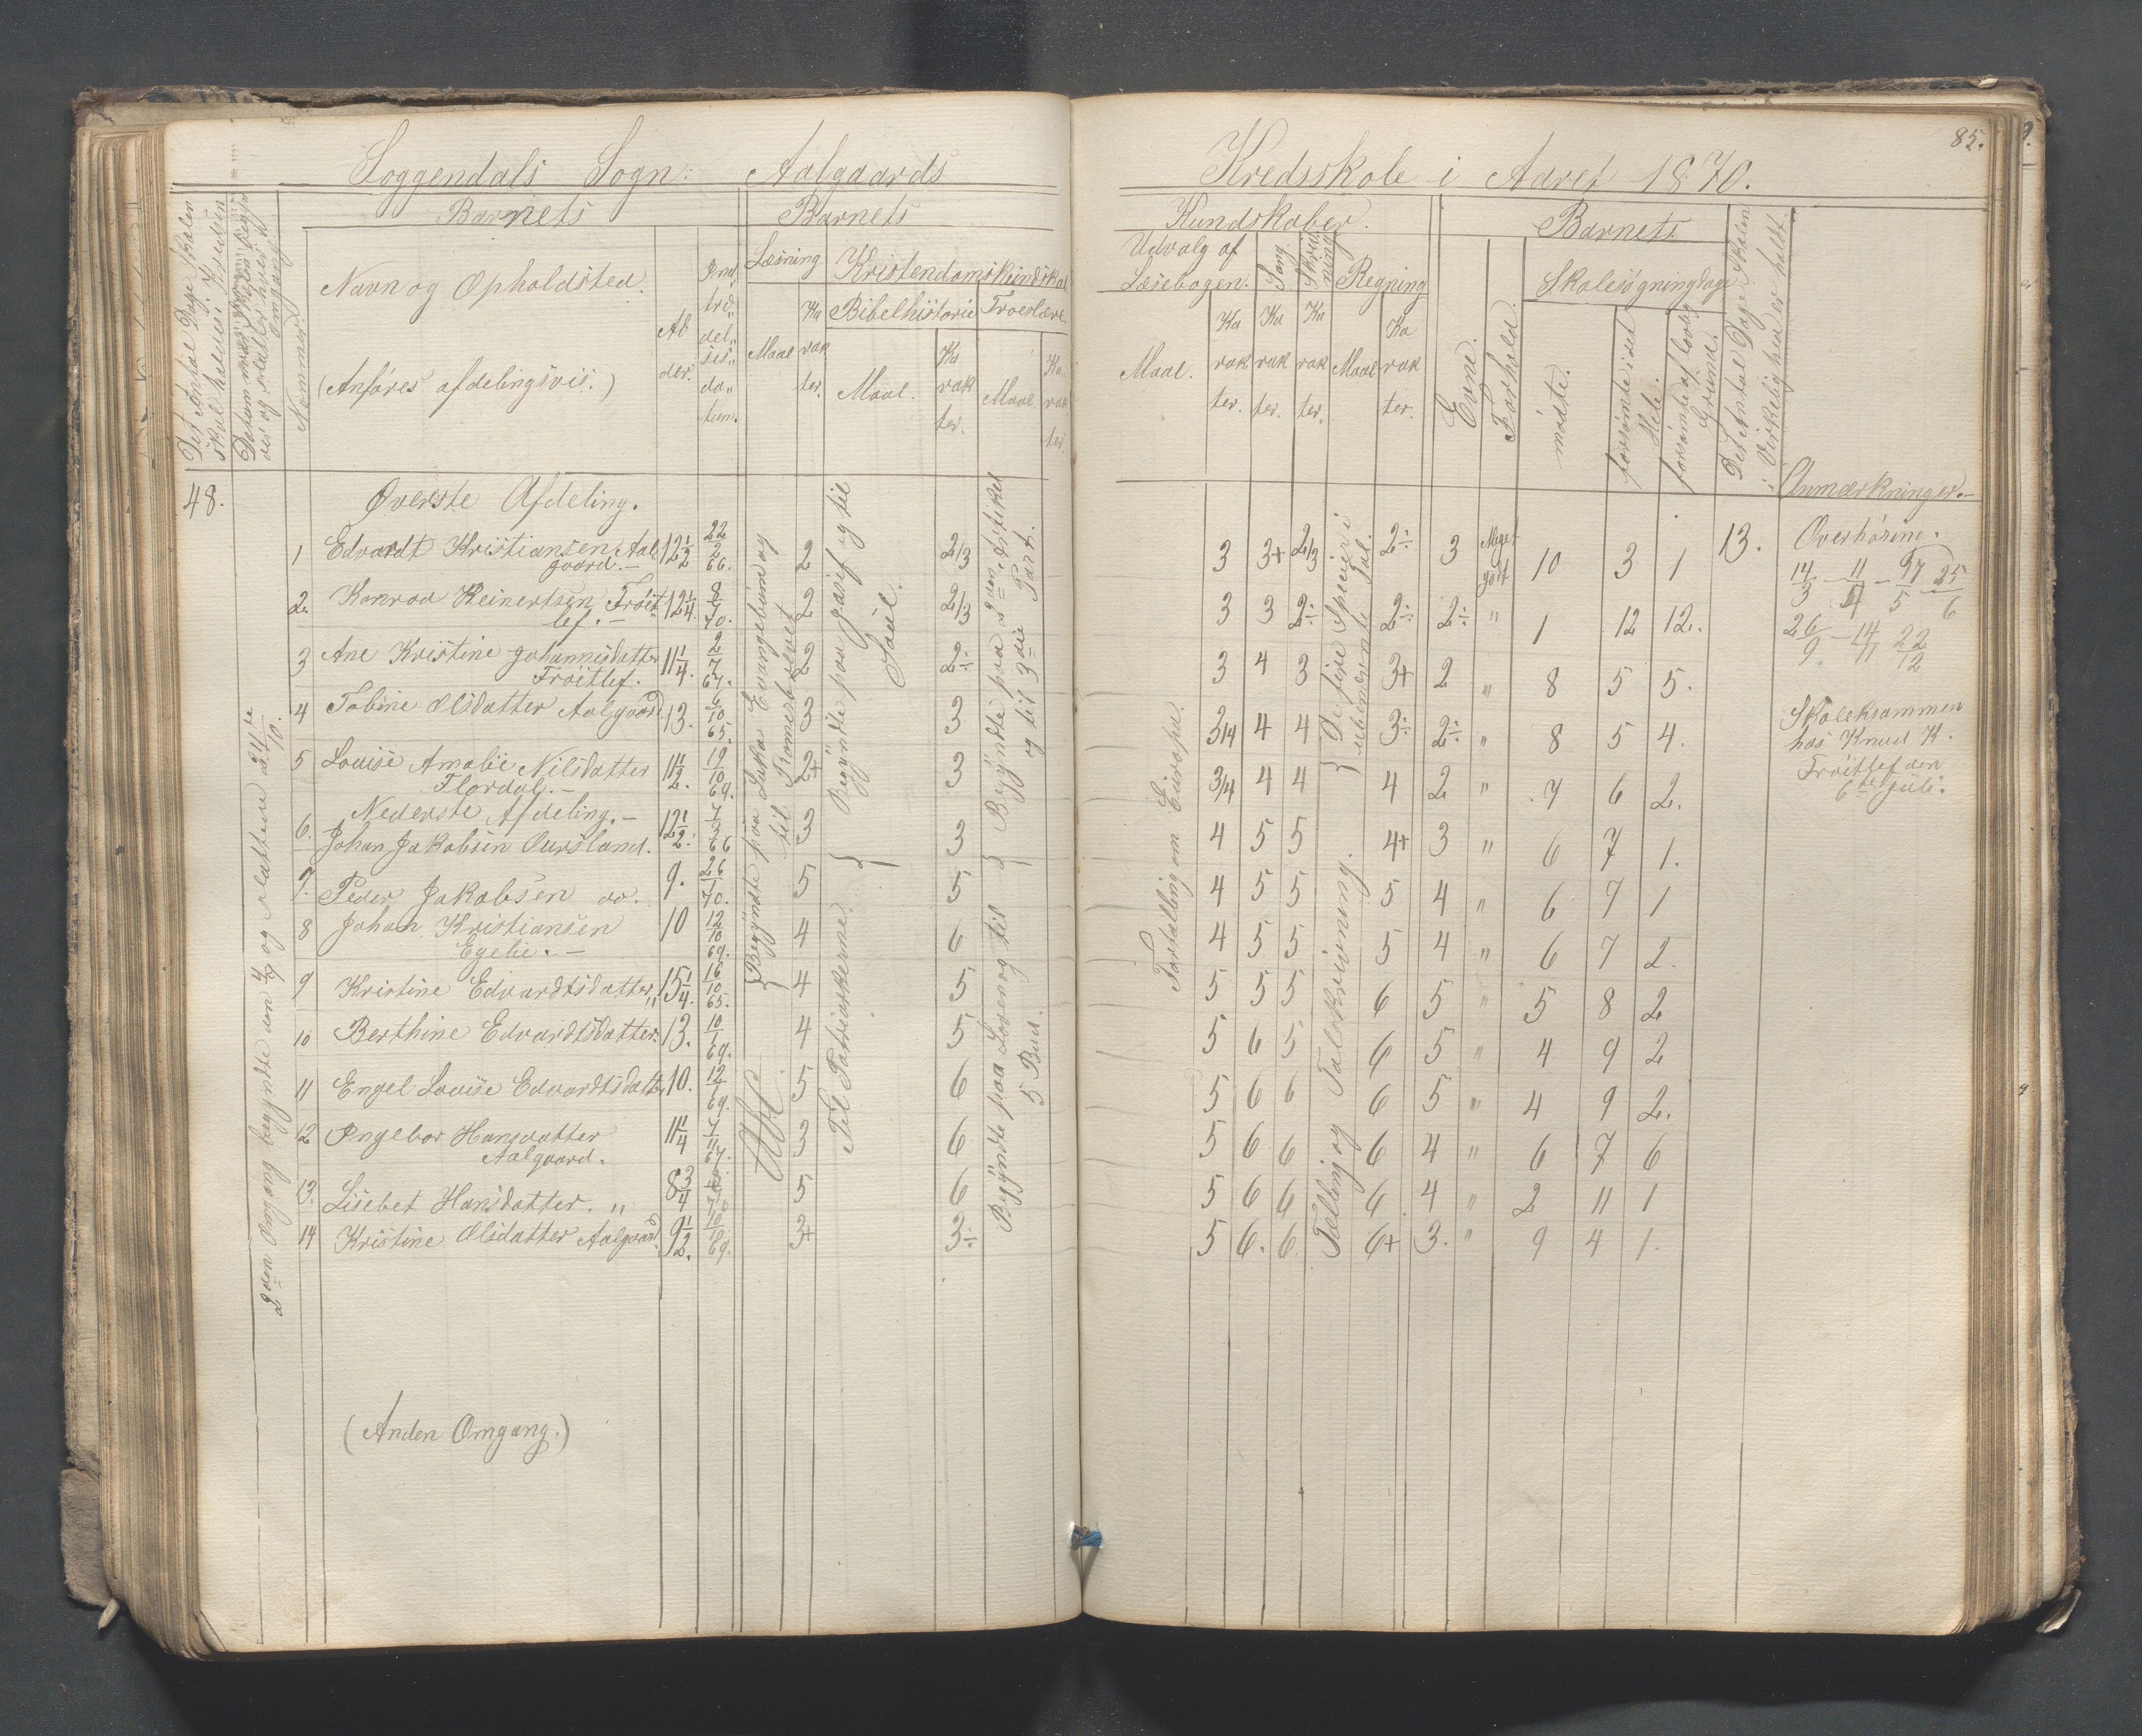 Soggendals Sogn: Aalgaards Kredsskole i Aaret 1870.
85.
Det Antal Dage Skolen
skal holdes i Kredsen
der og sluttes hver
Omgang
Nummer.
Barnets
Navn og Opholdsted.
(Anföres afdelingsvis.)
Al
der.
Ind
træ„
del„
ses„
da„
tum.
Barnets
Læsning
Maal
Ka
rak
ter.
Kristendomskundskab
Bibelhistorie
Maal.
Ka
rak
ter.
Troeslære
Maal
Ka
rak
ter.
Kundskaber.
Udvalg af
Læsebogen.
Maal.
Ka
rak
ter.
Sang
Ka
rak
ter.
Skriv
ning
Ka
rak
ter.
Regning
Maal
Ka
rak
ter.
Barnets
Evne.
Forhold.
Skolesøgningsdage
mødte.
forsømte i det
Hele.
forsømte af lovlig
Grund.
Det Antal Dage Skolen
i Virkelighed er holdt.
Anmærkninger.-
48.
2den Omgang begyndte den 4/7 og sluttede 24de/10.
Øverste Afdeling.
1 Edvardt Kristiansen Aal
gaard.- 12 1/2 22/2 66. 2 2/3 3 3+ 2/3 2÷ 3 Meget godt 10 3 1 13.
2. Konrad Reinertsen Tröit
lef.- 12 1/4. 8/7 70. 2 2/3 3 3 2÷ 2÷ 2÷ " 1 12 12.
3 Ane Kristine Johannesdatter
Tröitlef. 11 1/4. 2/7 67. 2 2÷ 3 4 3 3+ 2 " 8 5 5.
4 Tobine Olsdatter Aalgaard 13. 6/10 65. 3 3 3/4 4 4 3÷ 2÷ " 8 5 4.
5 Louise Amalie Nilsdatter
Flordal.- 11 1/2. 19/10 69. 2+ 3 3/4 4 4 4 2 " 7 6 2.
Nederste Afdeling.-
6. Johan Jakobsen Oursland. 12 1/2. 66 3 3 4 5 5 4+ 3 " 6 7 1.
7. Peder Jakobsen do. 9. 26/ 70. 5 5 4 5 5 5 4 " 6 7 1
8 Johan Kristiansen
Egelie.- 10 12/10 69. 4 6 4 5 5 5 4 " 6 7 2.
9 Kristine Edvardtsdatter „ 15 1/4. 16/10 65. 4 5 5 5 5 6 5 " 5 8 2
10 Berthine Edvardtsdatter. 13. 10/1 69. 4 5 5 6 5 6 5 " 4 9 2
11 Engel Louise Edvardtsdatter 10. 12/1 69. 5 6 5 6 6 6 5 " 4 9 2.
12 Ingebor Hansdatter
Aalgaard. 11 1/4 7/11 67. 3 6 5 6 6 6 4 " 6 7 6
13. Lisebet Hansdatter. „ 8 3/4 5 6 5 6 6 6. 4 " 2 11 1
14 Kristine Olsdatter Aalgaard. 9 1/2. 10/10 69. 3+ 3÷ 5 6. 6 6+ 3. " 9 4 1.
Begyndte paa Lukas Evangelium og
til Romerbrevet
Begyndte paa
og til
Saul.
Begyndte paa 2den Artikel
og til 3die Part.
Til Patriarkerne.
Begyndte paa Loven og til
5 Bud.
Fortælling om Europa.
De fire Specier i
ubenævnte Tal.
Tælling og Talskrivning.
Overhöring.
14/3 - 11/4 - 97/5 25/6
26/9 - 14/11 22/12
Skoleksammen
hos Knud K.
Tröitlef den
6te Juli.
(Anden Omgang.)